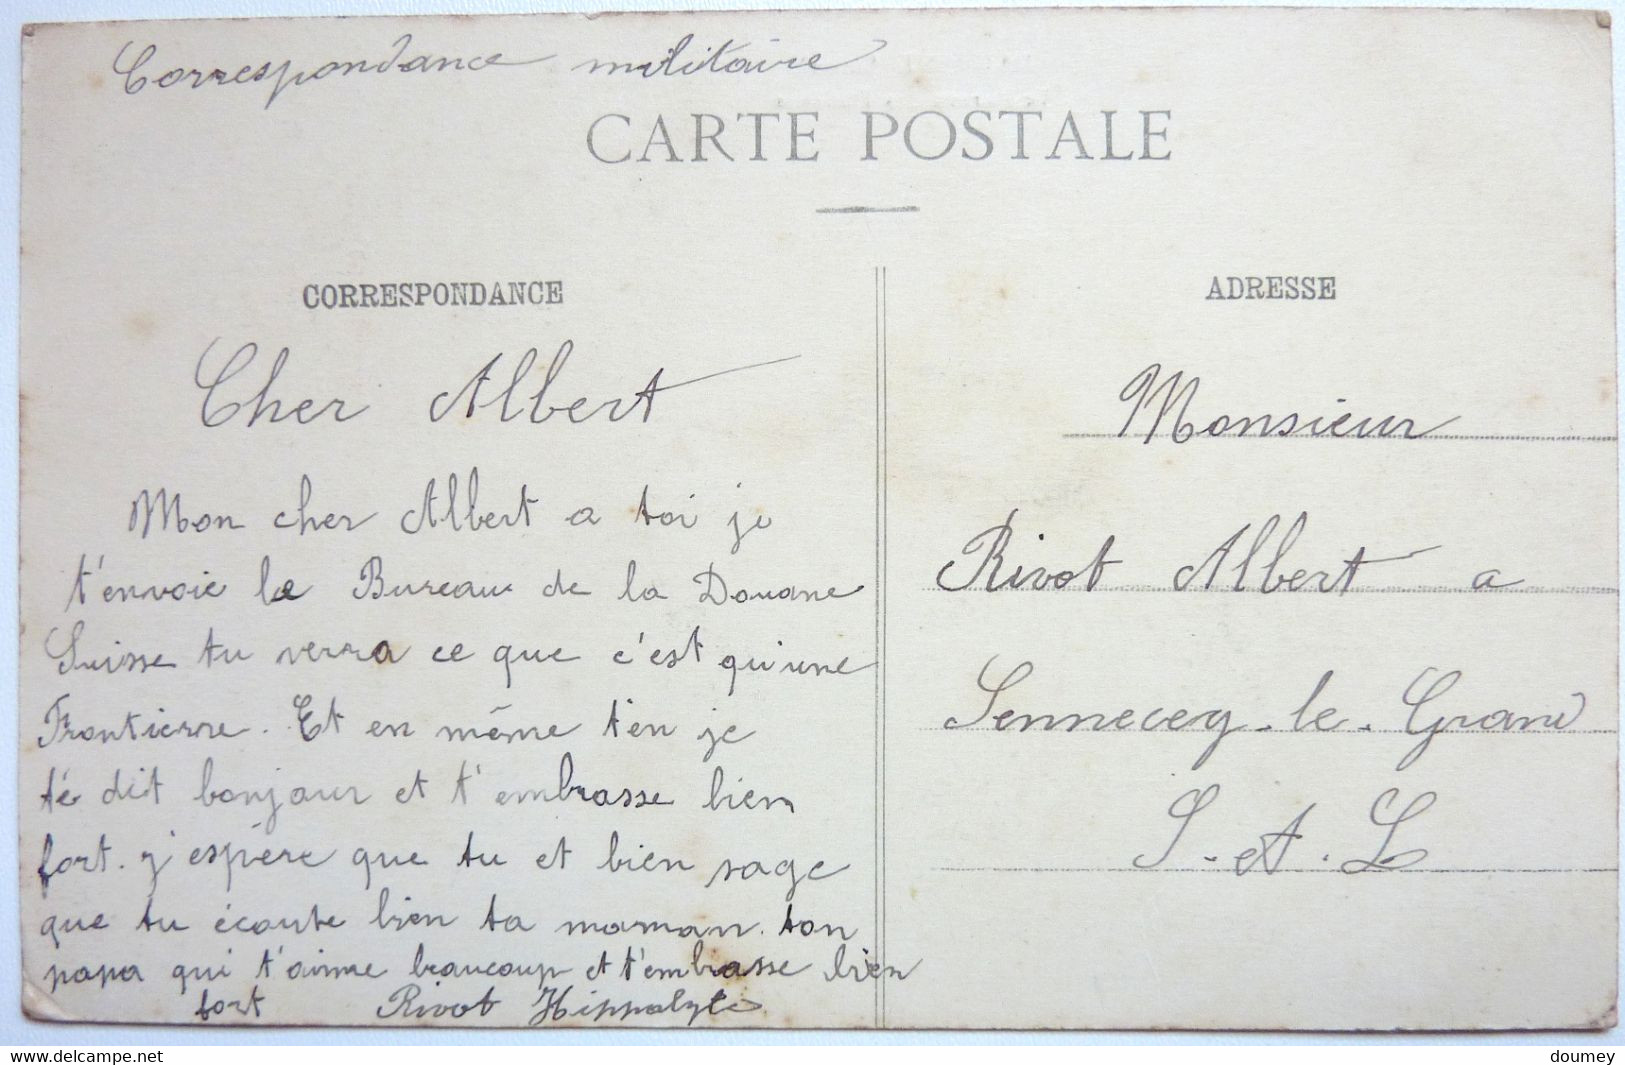 Correspondance militaire
CARTE POSTALE
CORRESPONDANCE
Cher Albert
Mon cher Albert a toi je
t'envoie le Bureau de la Douane
Suisse tu verra ce que c'est qu'une
Frontierre. Et en même t'en je
té dit bonjour et t'embrasse bien
fort. j'espère que tu et bien sage
que tu écoute bien ta maman. ton
papa qui t'aime beaucoup et t'embrasse bien
fort Rivot Hippolyte
ADRESSE
Monsieur
Rivot Albert a
Sennecey-le-Grand
S.-et.L
doumey